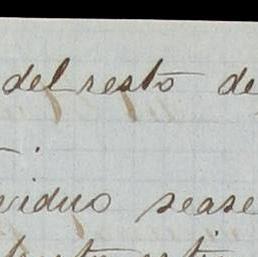 del resto de
viduo sease